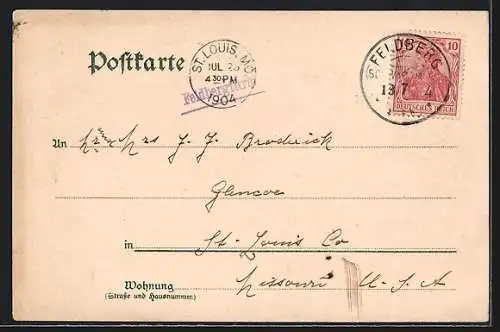 Postkarte
ST. LOUIS, MO.
JUL 25
4 30 PM
1904
FELDBERG
13.7. 4
10
DEUTSCHES REICH
An Mr and Mrs J. J. Brodrick
Glencoe
in St. Louis Co
Wohnung Missouri U. S. A
(Straße und Hausnummer)